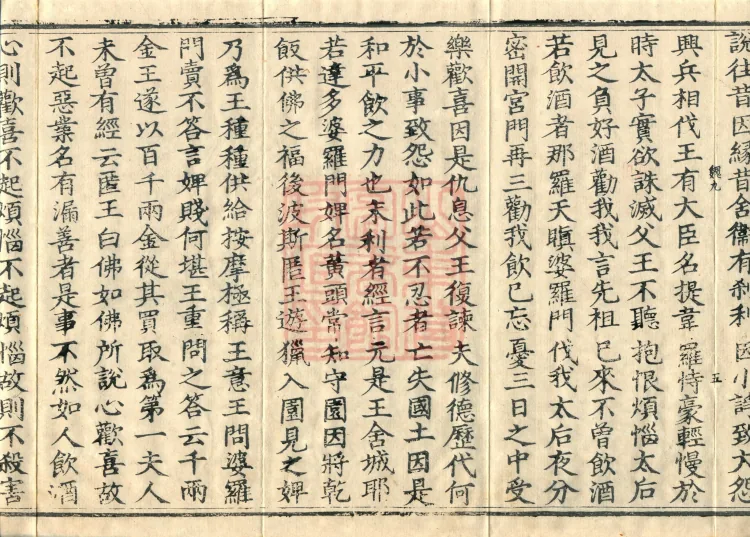 說往昔因緣昔舍衞有刹利因小諍致大怨
興兵相伐王有大臣名提韋羅恃豪輕慢於
時太子實欲誅滅父王不聽抱恨煩惱太后
見之負好酒勸我我言先祖已來不曾飲酒
若飲酒者那羅天瞋婆羅門伐我太后夜分
密開宮門再三勸我飲已忘憂三日之中受
樂歡喜因是仇息父王復諫夫修德歷代何
於小事致怨如此若不忍者亡失國土因是
和平飲之力也末利者經言元是王舍城耶
若達多婆羅門婢名黃頭常知守園因將乾
飯供佛之福後波斯匿王遊獵入園見之婢
乃爲王種種供給按摩極稱王意王問婆羅
門賣不答言婢賤何堪王重問之答云千兩
金王遂以百千兩金從其買取爲第一夫人
未曾有經云匿王白佛如佛所說心歡喜故
不起惡業名有漏善者是事不然如人飲酒
心則歡喜不起煩惱不起煩惱故則不殺害